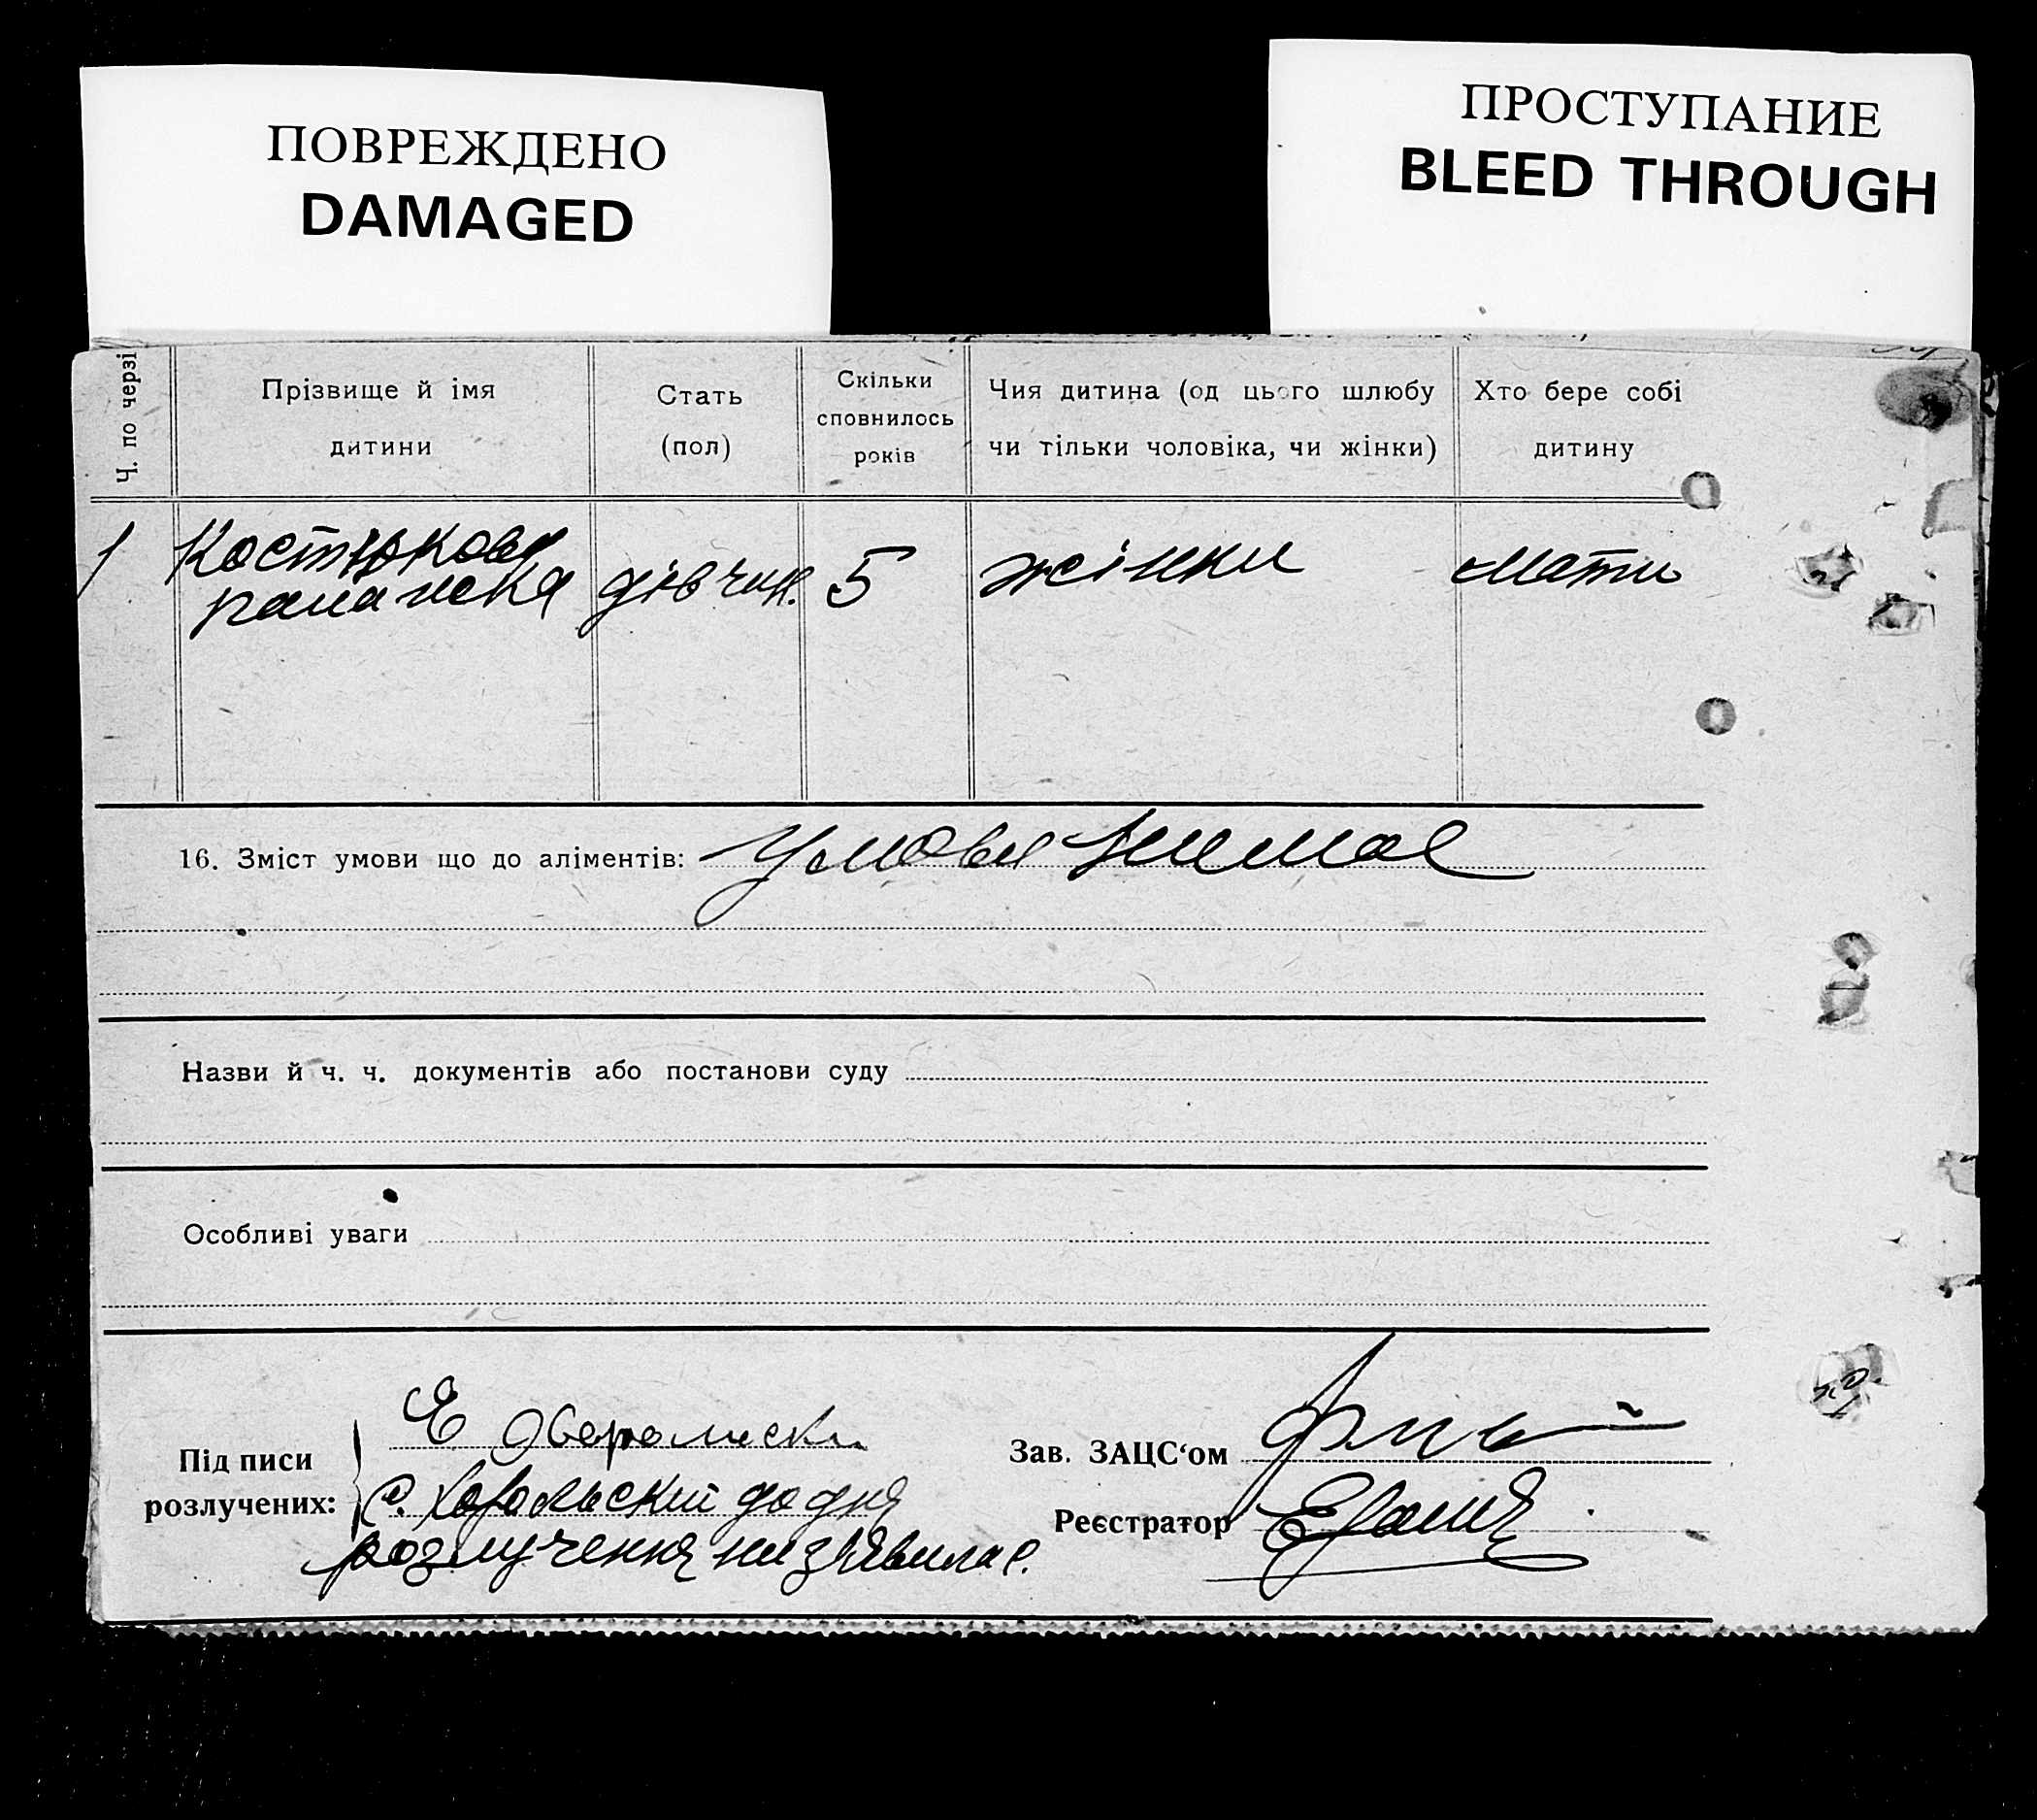 ПОВРЕЖДЕНО
DAMAGED
ПРОСТУПАНИЕ
BLEED THROUGH
Ч. по черзі
Прізвище й імя
дитини
Стать
(пол)
Скільки
сповнилось
років
Чия дитина (од цього шлюбу
чи тільки чоловіка, чи жінки)
Хто бере собі
дитину
1 Костюкова дівчин. 5 жінки мати
16. Зміст умови що до аліментів: Умови немає
Назви й ч. ч. документів або постанови суду
Особливі уваги
Під писи
розлучених:
Е
С. Хорольский до дня
розлучення не зʼявилас.
Зав. ЗАЦС‘ом
Реєстратор